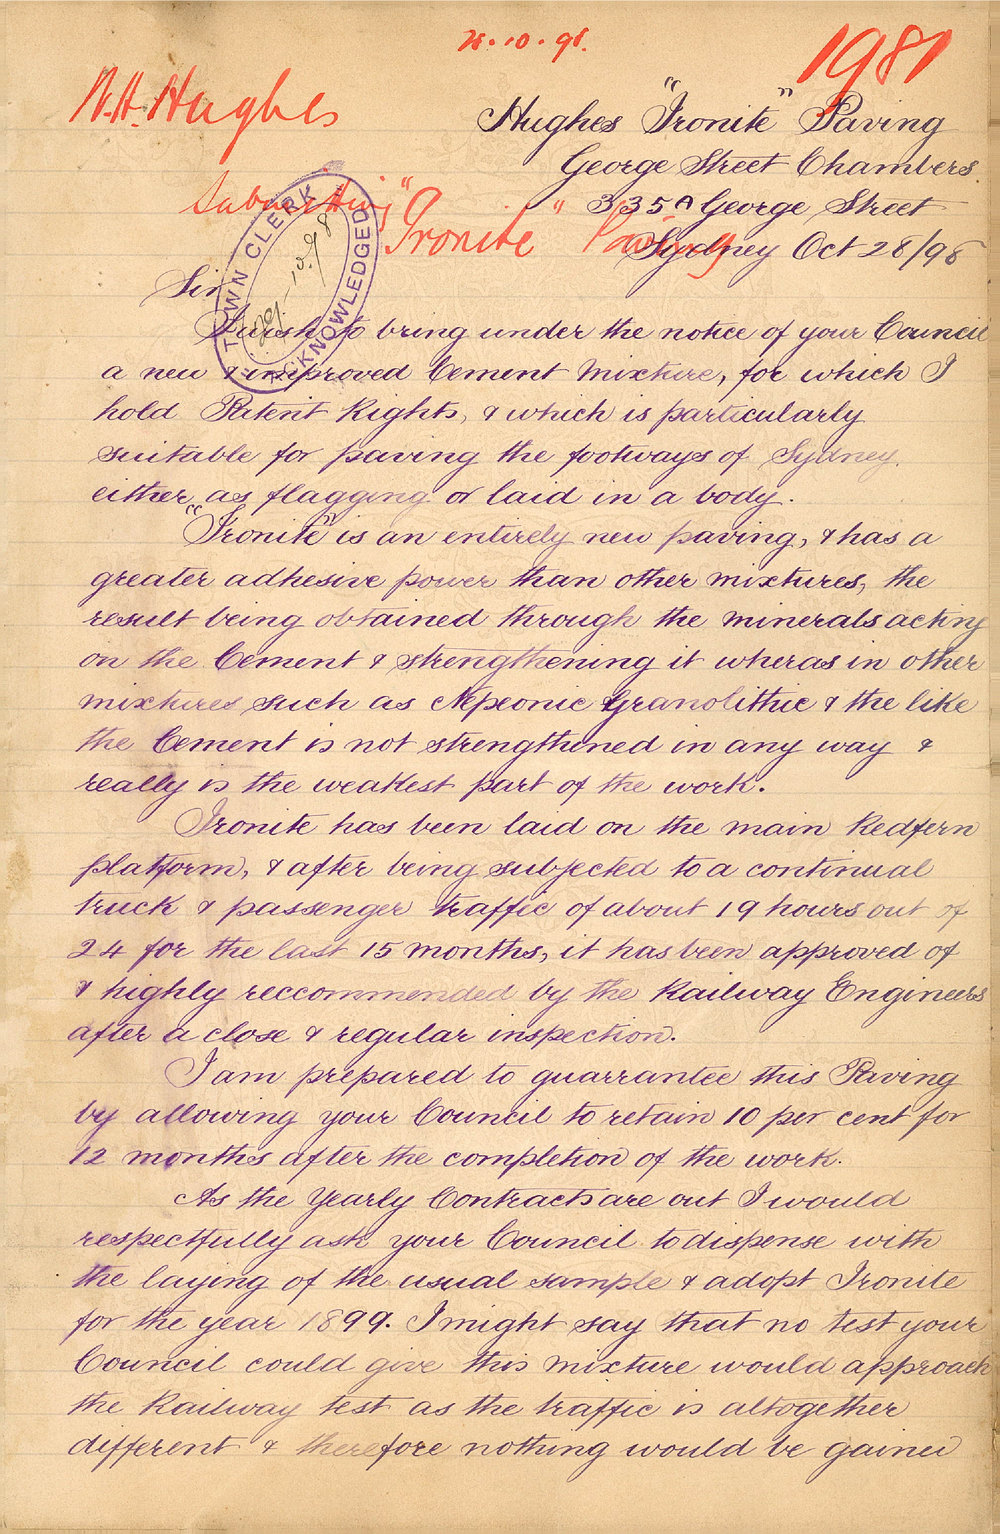 28.10.98.
1981
W.H. Hughes
Submitting "Ironite" Paving
Hughes "Ironite" Paving
George Street Chambers.
335A George Street
Sydney Oct 28/98
TOWN CLERK
ACKNOWLEDGED
Sir
I wish to bring under the notice of your Council
a new & improved Cement Mixture, for which I
hold Patent Rights, & which is particularly
suitable for paving the footways of Sydney,
either as flagging or laid in a body.
"Ironite" is an entirely new paving, & has a
greater adhesive power than other mixtures, the
result being obtained through the minerals acting
on the Cement & strengthening it wheras in other
mixtures such as Nepeonic Granolithic & the like
the Cement is not strengthened in any way &
really is the weakest part of the work.
Ironite has been laid on the main Redfern
platform, & after being subjected to a continual
truck & passenger traffic of about 19 hours out of
24 for the last 15 months, it has been approved of
& highly reccommended by the Railway Engineers
after a close & regular inspection.
I am prepared to guarrantee this Paving
by allowing your Council to retain 10 per cent for
12 months after the completion of the work.
As the Yearly Contracts are out I would
respectfully ask your Council to dispense with
the laying of the usual sample & adopt Ironite
for the year 1899. I might say that no test your
Council could give this mixture would approach
the Railway test as the traffic is altogether
different & therefore nothing would be gained